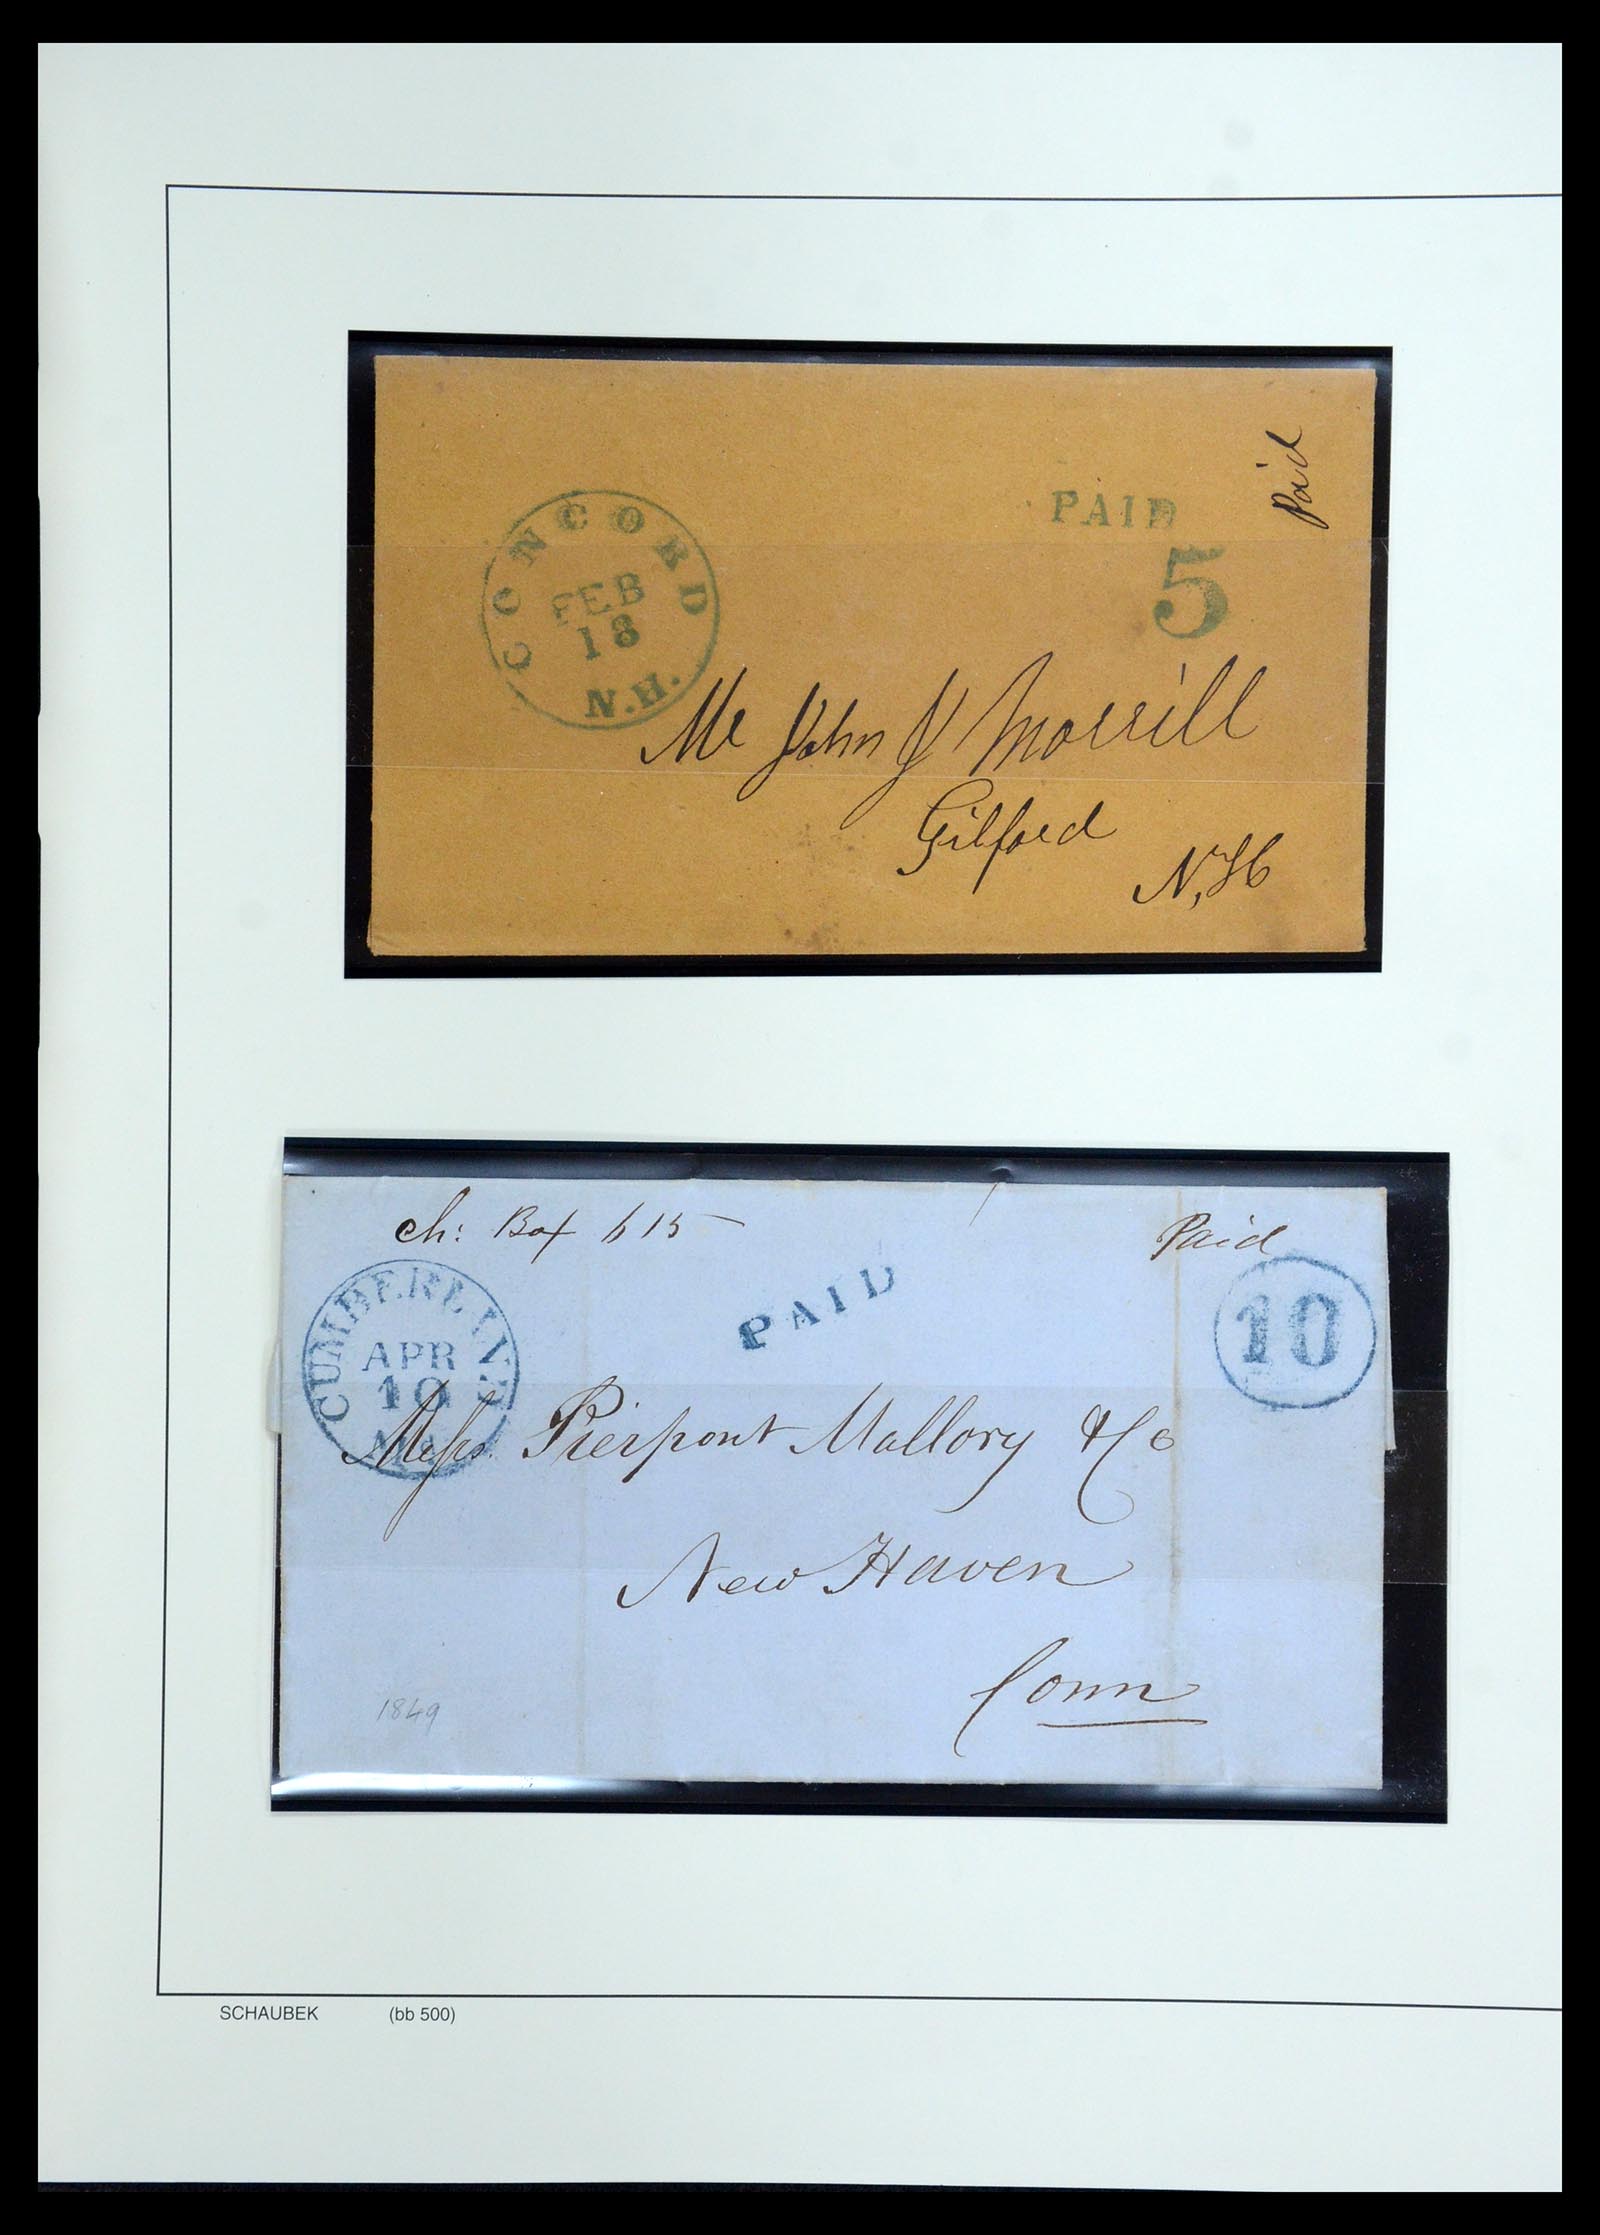 CONCORD
FEB
18
N.H.
PAID
5
Paid
Mr John J Morrill
Gilford
N,H
ch: Box 615
Paid
CUMBERLAND
APR
10
PAID
10
Messrs Pierpont Mallory & Co
New Haven
Conn
1849
SCHAUBEK (bb 500)